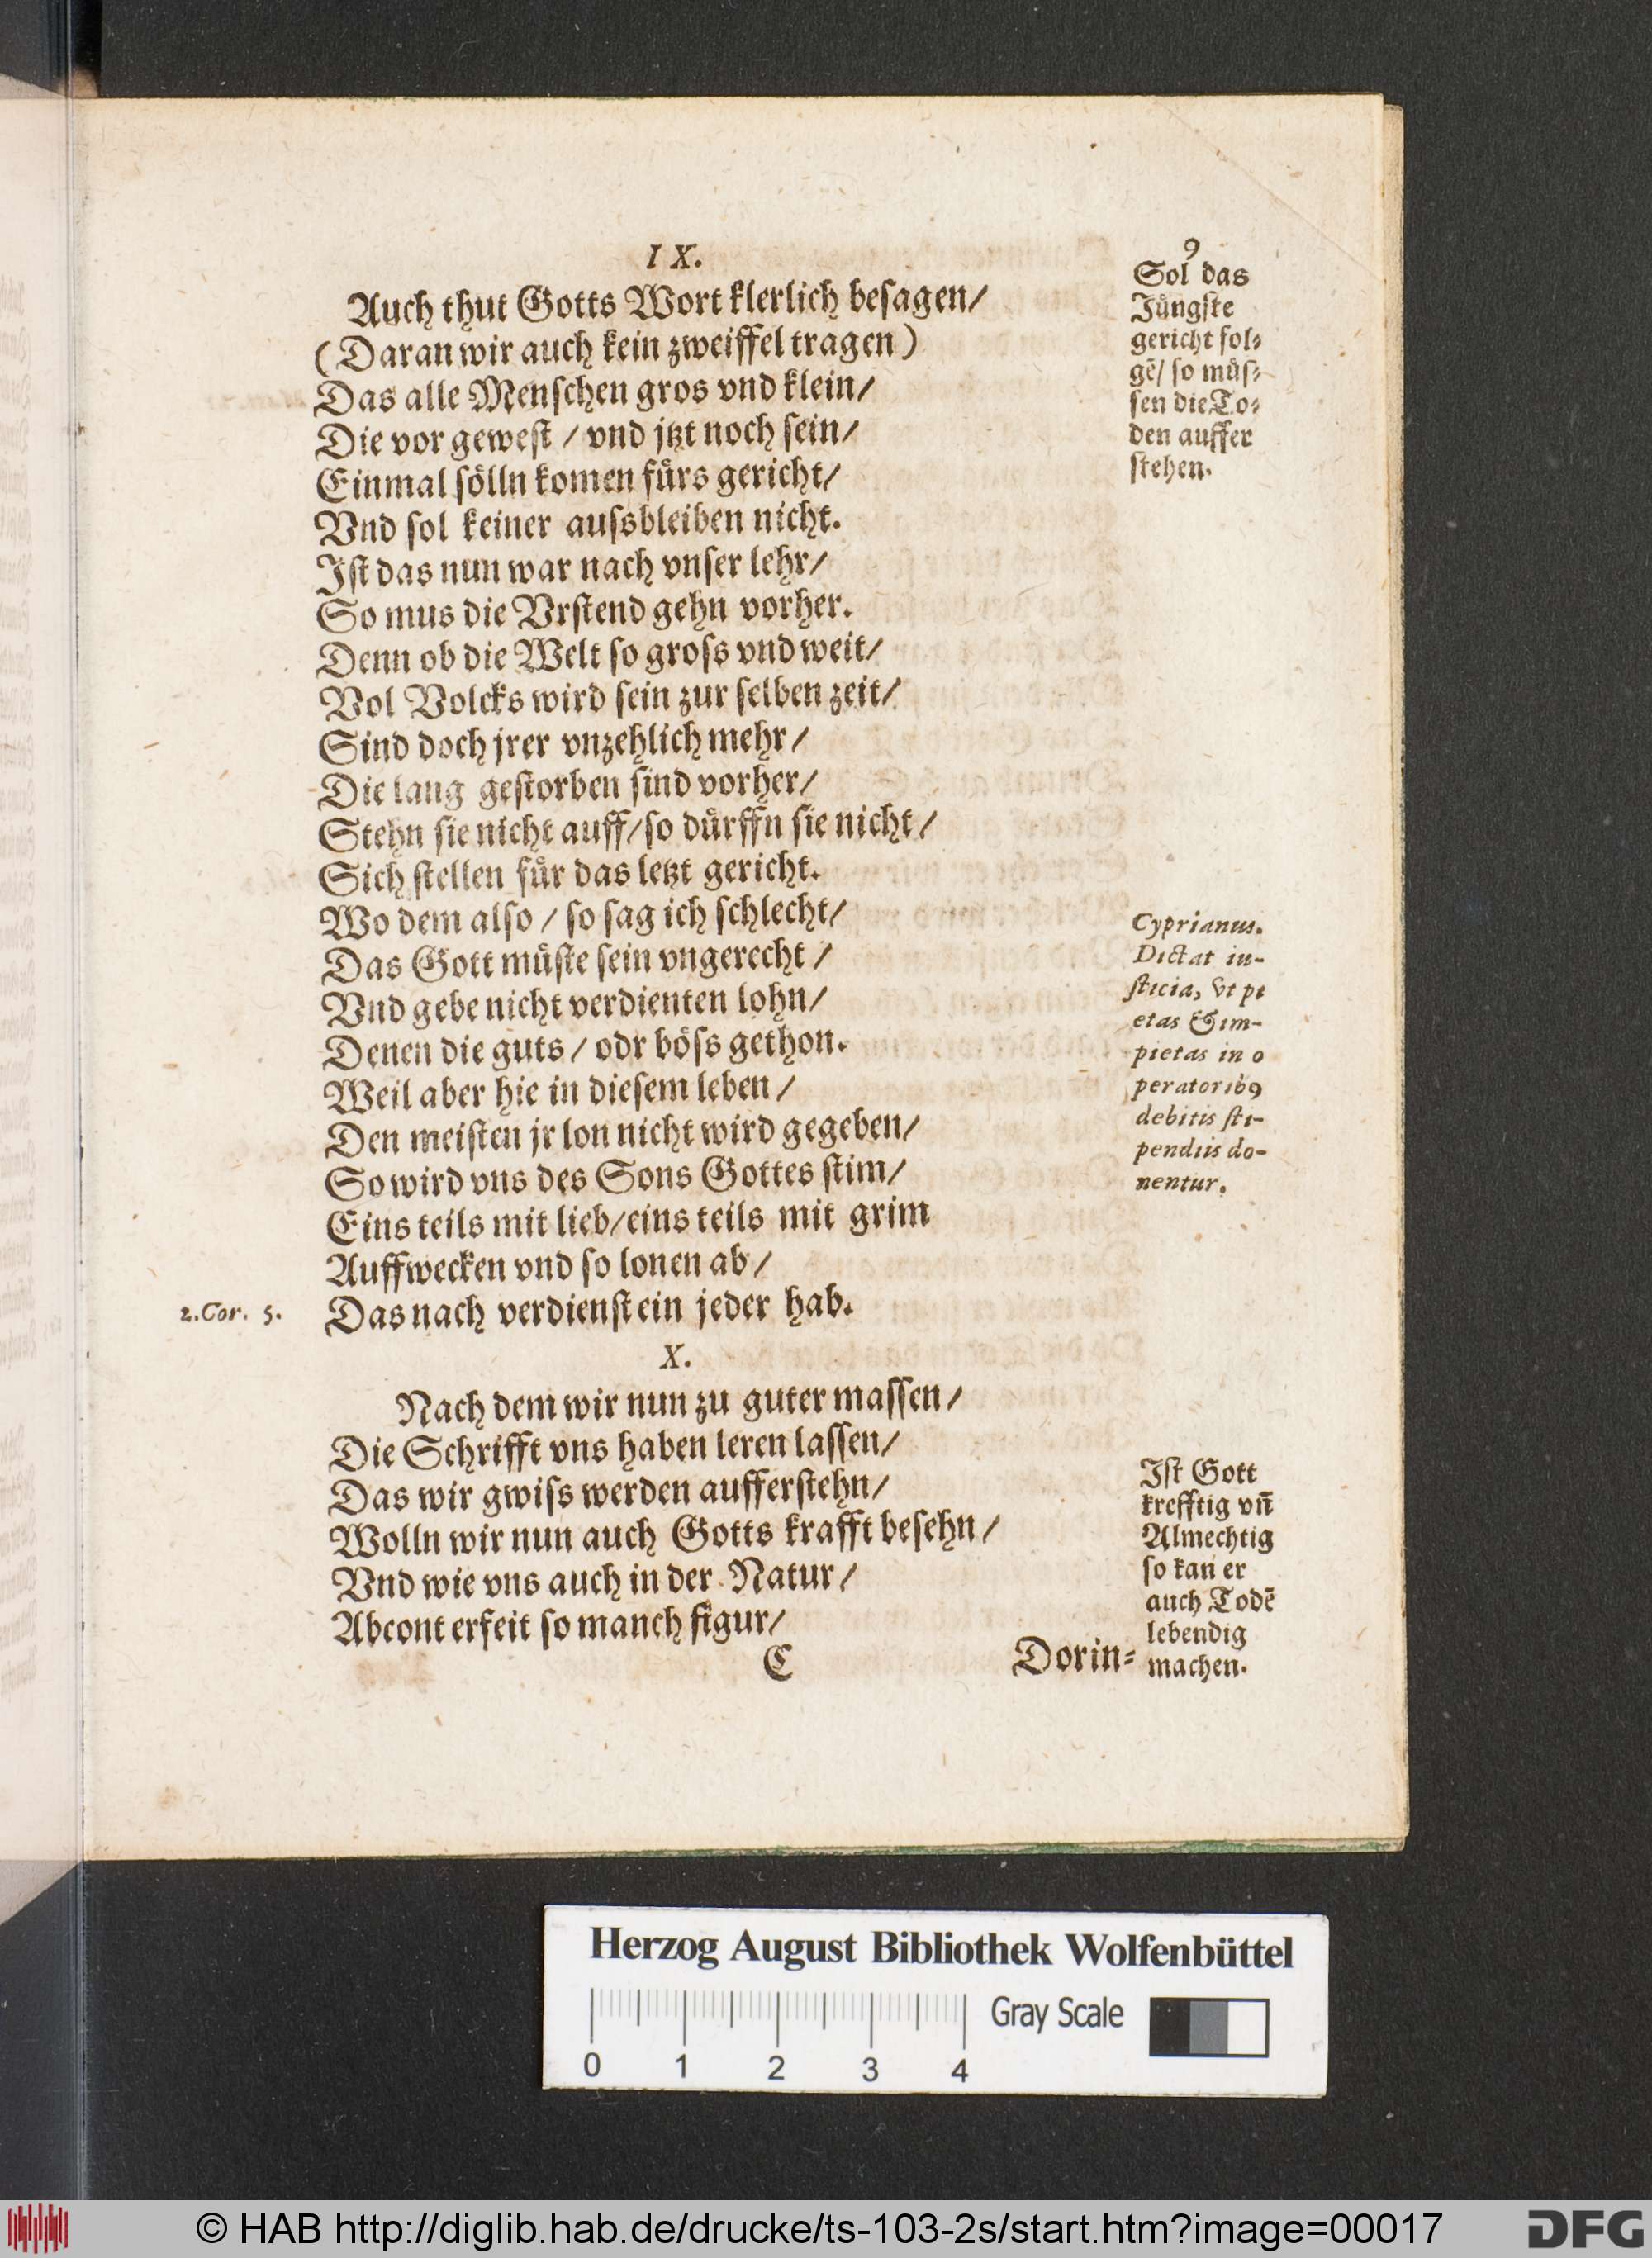 IX.
Auch thut Gotts Wort klerlich besagen/
(Daran wir auch kein zweiffel tragen)
Das alle Menschen gros vnd klein/
Die vor gewest / vnd jtzt noch sein/
Einmal sölln komen fürs gericht/
Vnd sol keiner aussbleiben nicht.
Ist das nun war nach vnser lehr/
So mus die Vrstend gehn vorher.
Denn ob die Welt so gross vnd weit/
Vol Volcks wird sein zur selben zeit/
Sind doch jrer vnzehlich mehr/
Die lang gestorben sind vorher/
Stehn sie nicht auff/so dürffn sie nicht/
Sich stellen für das letzt gericht.
Wo dem also / so sag ich schlecht/
Das Gott müste sein vngerecht /
Vnd gebe nicht verdienten lohn/
Denen die guts / odr böss gethon.
Weil aber hie in diesem leben /
Den meisten jr lon nicht wird gegeben/
So wird vns des Sons Gottes stim/
Eins teils mit lieb/eins teils mit grim
Auffwecken vnd so lonen ab /
Das nach verdienst ein jeder hab.
2.Cor. 5.
X.
Nach dem wir nun zu guter massen /
Die Schrifft vns haben leren lassen/
Das wir gwiss werden aufferstehn/
Wolln wir nun auch Gotts krafft besehn /
Vnd wie vns auch in der Natur /
Abconterfeit so manch figur/
C
Dorin=
9
Sol das
Jüngste
gericht fol=
gē/ so müs=
sen die To=
den auffer
stehen.
Cyprianus.
Dictat iu-
sticia, vt pi
etas & im-
pietas in o
peratorib9
debitis sti-
pendiis do-
nentur.
Ist Gott
krefftig vñ
Almechtig
so kan er
auch Todē
lebendig
machen.
Herzog August Bibliothek Wolfenbüttel
Gray Scale
0 1 2 3 4
© HAB http://diglib.hab.de/drucke/ts-103-2s/start.htm?image=00017
DFG